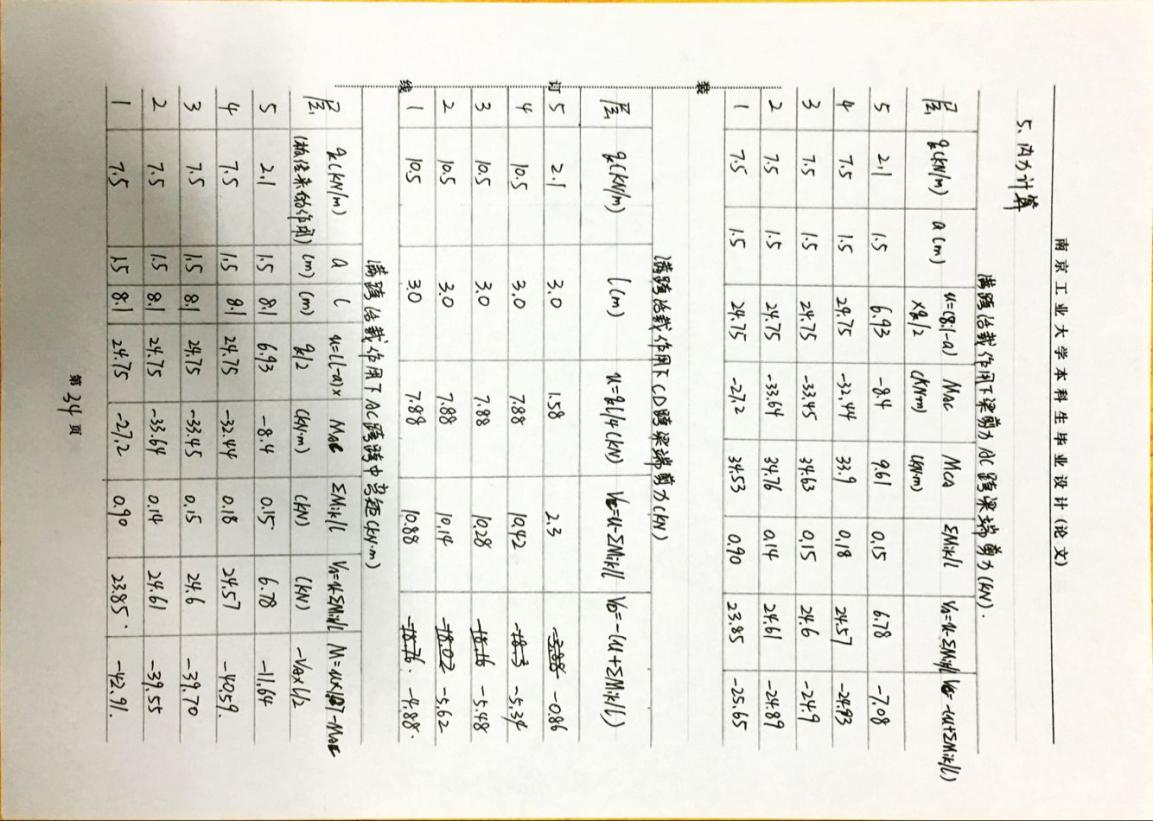 南京工业大学本科生毕业设计(论文)
5、内力计算
满跨活载作用下梁剪力AC跨梁端剪力(kN).
层 q(kN/m) a(m) u=(8.1-a)×q/2 MAC(kN·m) MCA(kN·m) ΣMik/l VA=u-ΣMik/l VC=-(u+ΣMik/l)
5 2.1 1.5 6.93 -8.4 9.61 0.15 6.78 -7.08
4 7.5 1.5 24.75 -32.44 33.9 0.18 24.57 -24.93
3 7.5 1.5 24.75 -33.45 34.63 0.15 24.6 -24.9
2 7.5 1.5 24.75 -33.64 34.76 0.14 24.61 -24.89
1 7.5 1.5 24.75 -27.2 34.53 0.90 23.85 -25.65
装
满跨活载作用下CD跨梁端剪力(kN)
层 q(kN/m) l(m) u=ql/4(kN) VC=u-ΣMik/l VD=-(u+ΣMik/l)
5 2.1 3.0 1.58 2.3 -0.86
4 10.5 3.0 7.88 10.42 -5.34
3 10.5 3.0 7.88 10.28 -5.48
2 10.5 3.0 7.88 10.14 -5.62
1 10.5 3.0 7.88 10.88 -4.88.
订
满跨活载作用下AC跨跨中弯矩(kN·m)
层 q(kN/m)(板传来的作用) a(m) l(m) u=(l-a)×q/2 MAC(kN·m) ΣMik/l(kN) VA=u-ΣMik/l(kN) -VA×l/2
5 2.1 1.5 8.1 6.93 -8.4 0.15 6.78 -11.64
4 7.5 1.5 8.1 24.75 -32.44 0.18 24.57 -40.59.
3 7.5 1.5 8.1 24.75 -33.45 0.15 24.6 -39.70
2 7.5 1.5 8.1 24.75 -33.64 0.14 24.61 -39.55
1 7.5 1.5 8.1 24.75 -27.2 0.90 23.85. -42.91.
线
第 34 页